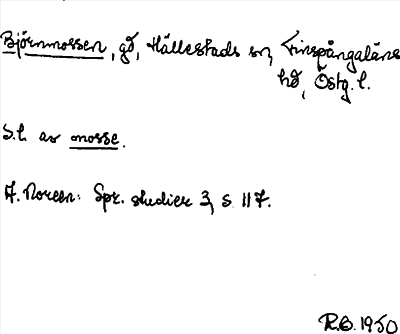 Björnmossen, gd, Hällestads sn, Finspångaläns
hd, Östg. l.
S.l. av mosse.
A. Noreen: Spr. studier 3, s. 117.
R.O. 1950